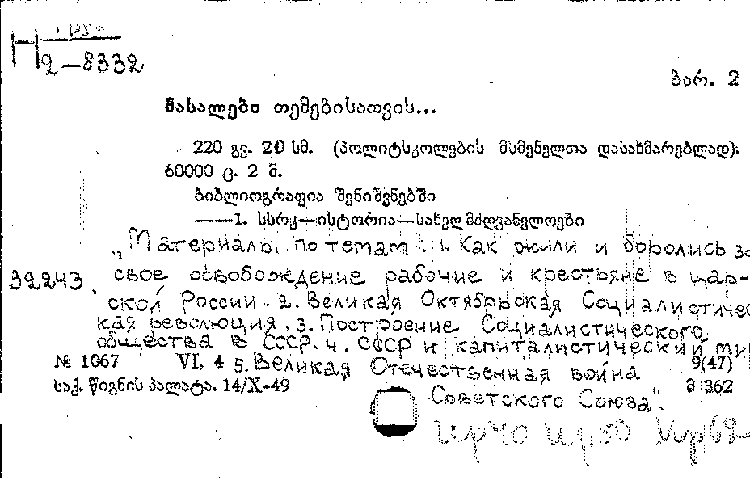 2-8332
ბარ. 2
მასალები თემებისათვის...
220 გვ. 20 სმ. (პოლიტსკოლების მსმენელთა დასახმარებლად).
60000 ც. 2 მ.
ბიბლიოგრაფია შენიშვნებში
——1. სსრკ—ისტორია—სახელმძღვანელოები
„Материалы по темам: 1. Как жили и боролись за
32243. свое освобождение рабочие и крестьяне в цар-
ской России. 2. Великая Октябрьская Социалистичес
кая революция. 3. Построение Социалистического
общества в СССР. 4. СССР и капиталистический мир
№ 1067 VI, 4 5. Великая Отечественная война 9(47)
საქ. წიგნის პალატა. 14/X-49 362
Советского Союза".